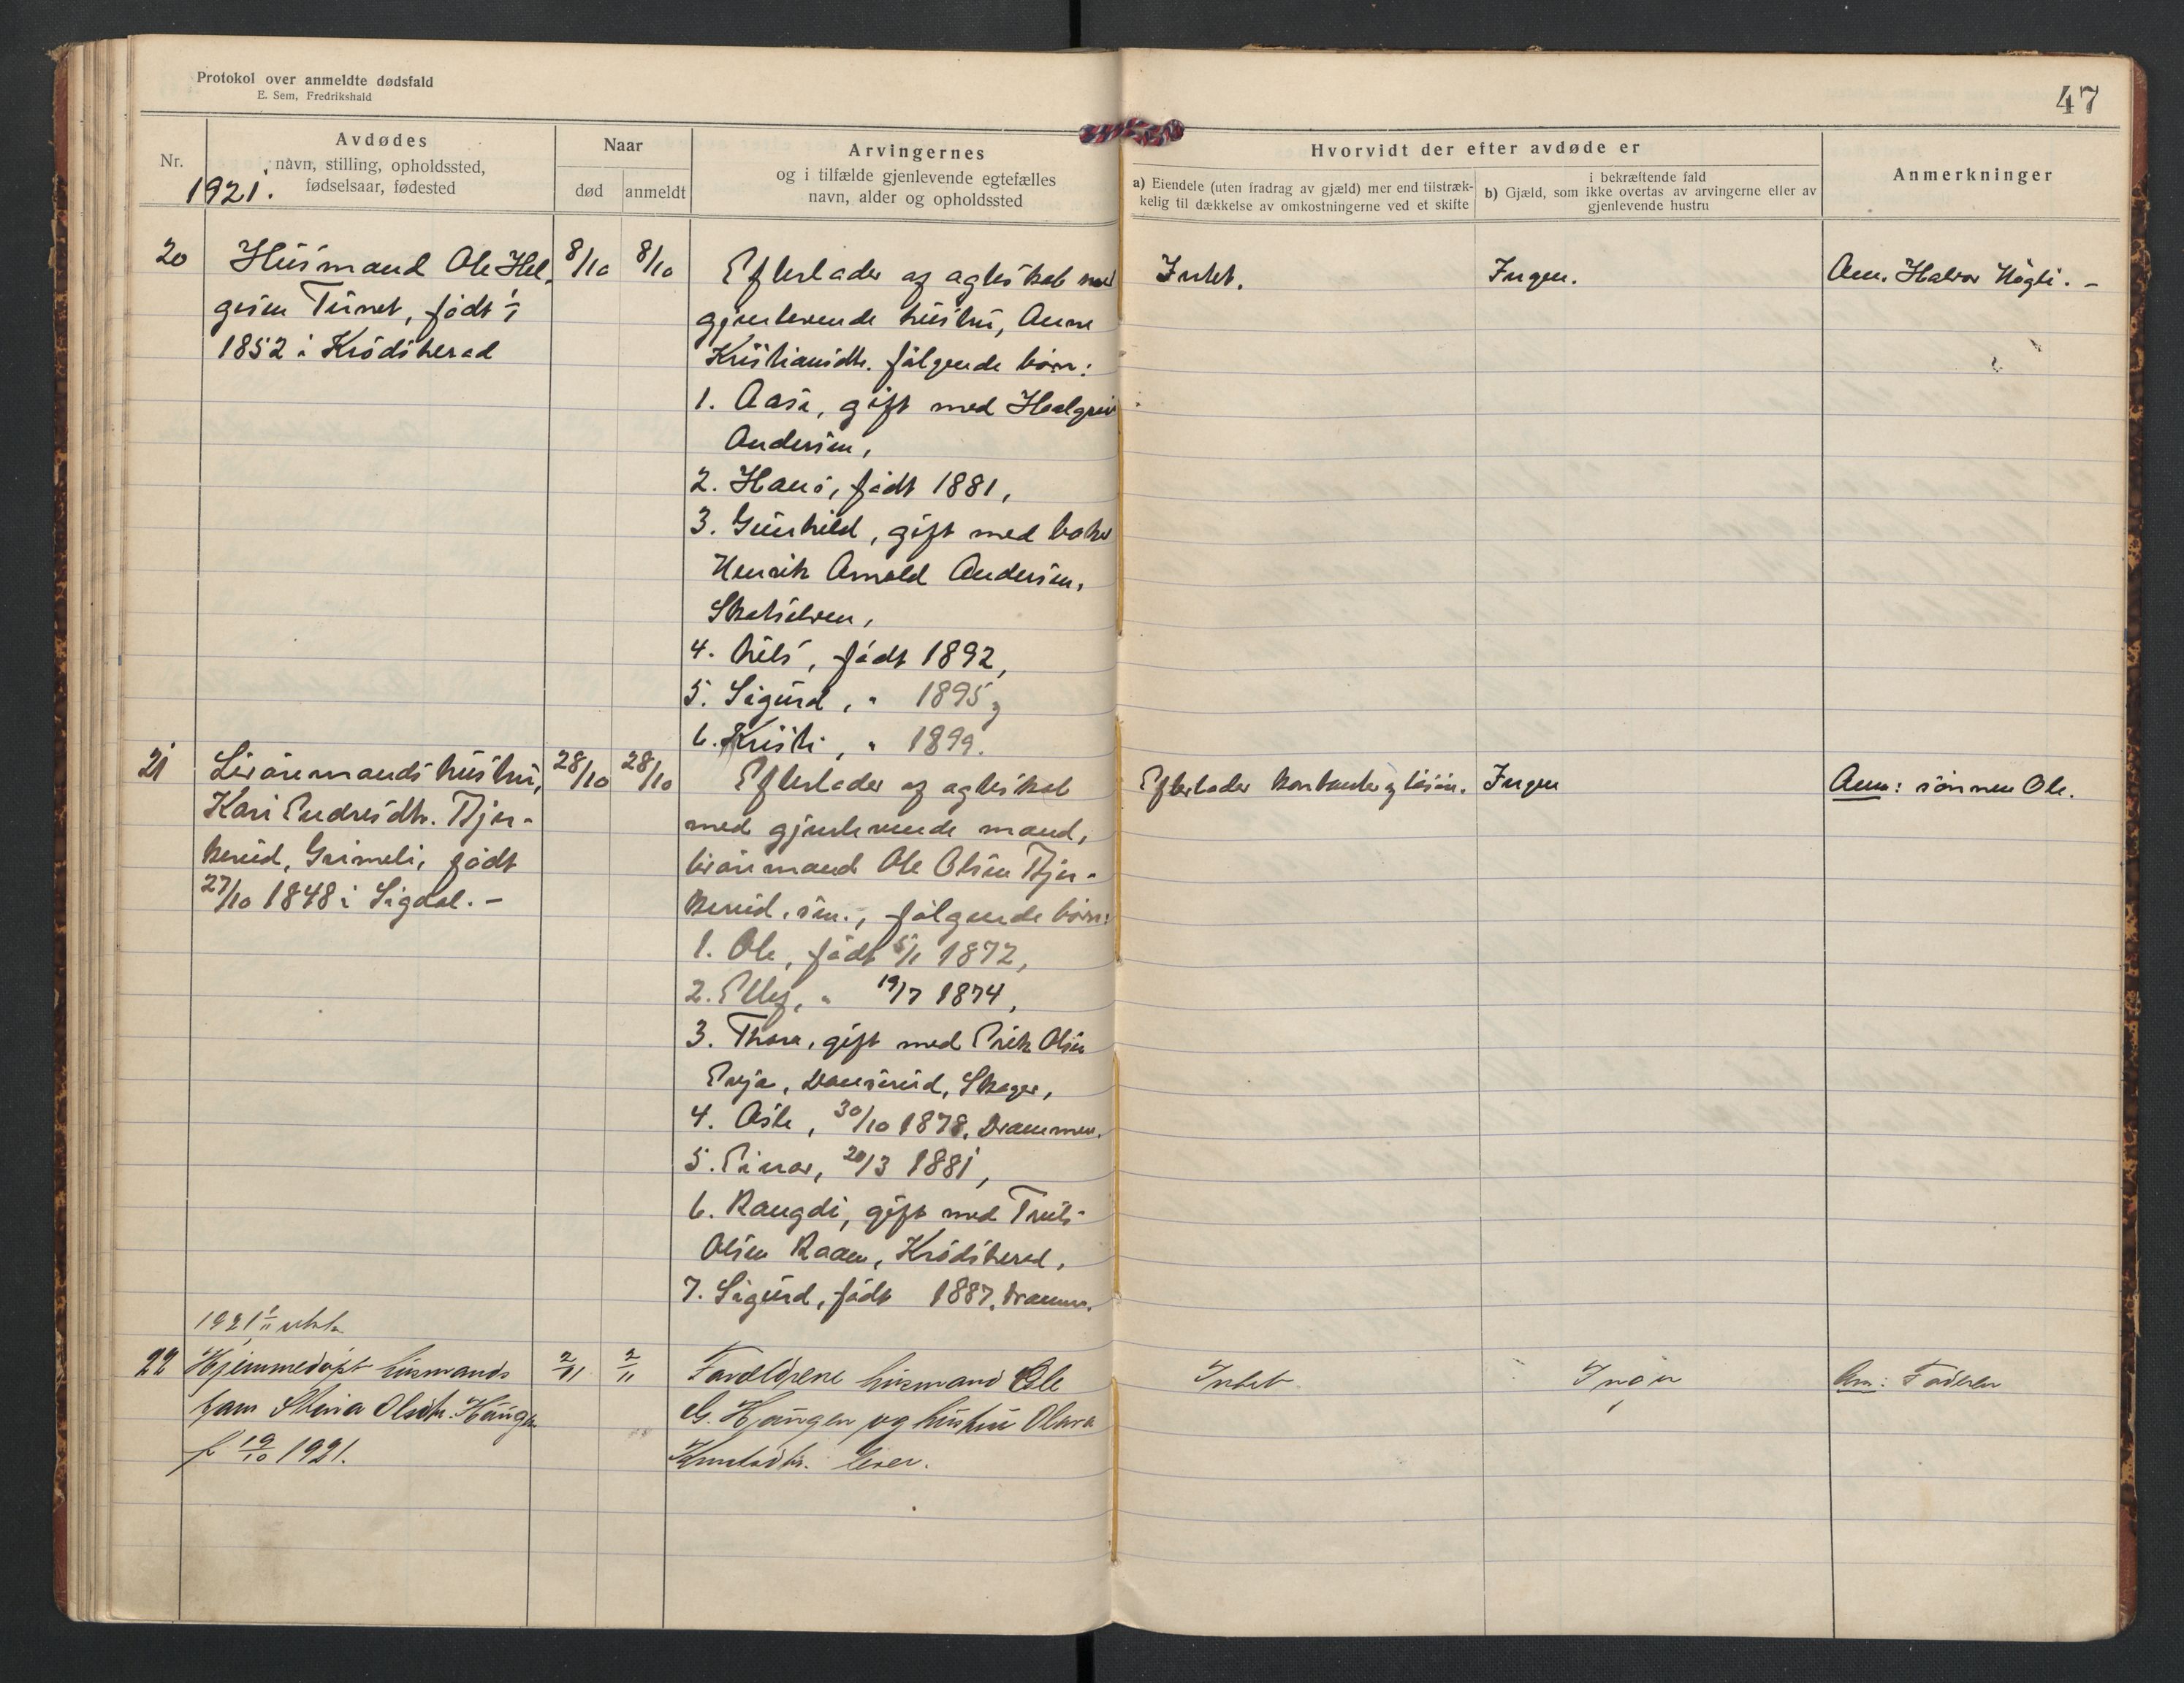 Protokol over anmeldte dødsfald
E. Sem, Fredrikshald
47
Nr.
Avdødes
navn, stilling, opholdssted,
fødselsaar, fødested
Naar
død
anmeldt
Arvingernes
og i tilfælde gjenlevende egtefælles
navn, alder og opholdssted
Hvorvidt der efter avdøde er
a) Eiendele (uten fradrag av gjæld) mer end tilstræk-
kelig til dækkelse av omkostningerne ved et skifte
i bekræftende fald
b) Gjæld, som ikke overtas av arvingerne eller av
gjenlevende hustru
Anmerkninger
1921.
20
Husmand Ole Hel-
gesen Turret, født
1852 i Krødsherad
8/10
8/10
Efterlader og agteskab med
gjenlevende hustru, Anne
Kristiansdtr. følgende børn:
1. Aase, gift med
Andersen,
2. Hans, født 1881,
3. Gunhild, gift med baker
Henrik Arnold Andersen,
Skotselven,
4. Nils, født 1892,
5. Sigurd, " 1895,
6. Kristi, " 1899.
Intet.
Ingen.
Anm. Halvor Høgli. -
21
Livøremands hustru,
Kari Endresdtr. Bjer-
kerud, Grimeli, født
27/10 1848 i Sigdal. -
28/10
28/10
Efterlader og agteskab
med gjenlevende mand,
livøremand Ole Olsen Bjer-
kerud, sen., følgende børn:
1. Ole, født 5/1 1872,
2. Ellef, " 19/7 1874,
3. Thora, gift med Erik Olsen
Enja, Skoger,
4. Asle, 30/10 1878, Drammen.
5. Einar, 20/3 1881,
6. Rangdi, gift med Truls
Olsen Raaen, Krødsherad,
7. Sigurd, født 1887, Drammen.
Efterlader kontanter og løsøre.
Ingen
Anm: sønnen Ole.
1921 1/11
22
Hjemmedøpt husmands
barn Olsdtr.
f 19/10 1921.
2/11
2/11
Forældrene husmand Ole
G. og hustru
Knutsdtr. lever.
Intet
Ingen
Anm: Faderen